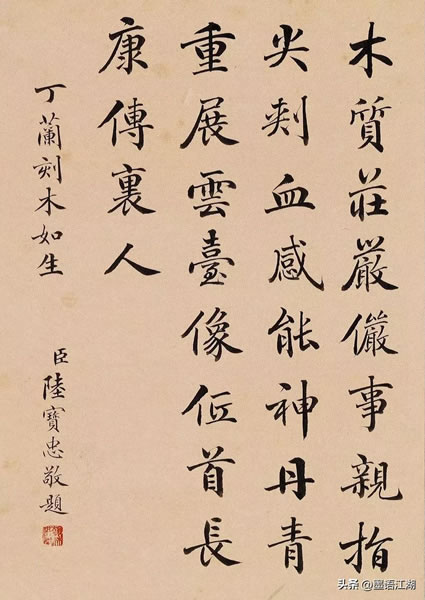 木質莊嚴儼事親指
尖刺血感能神丹青
重展雲臺像位首長
康傳裏人
丁蘭刻木如生
臣陸寶忠敬題
头条 @墨语江湖